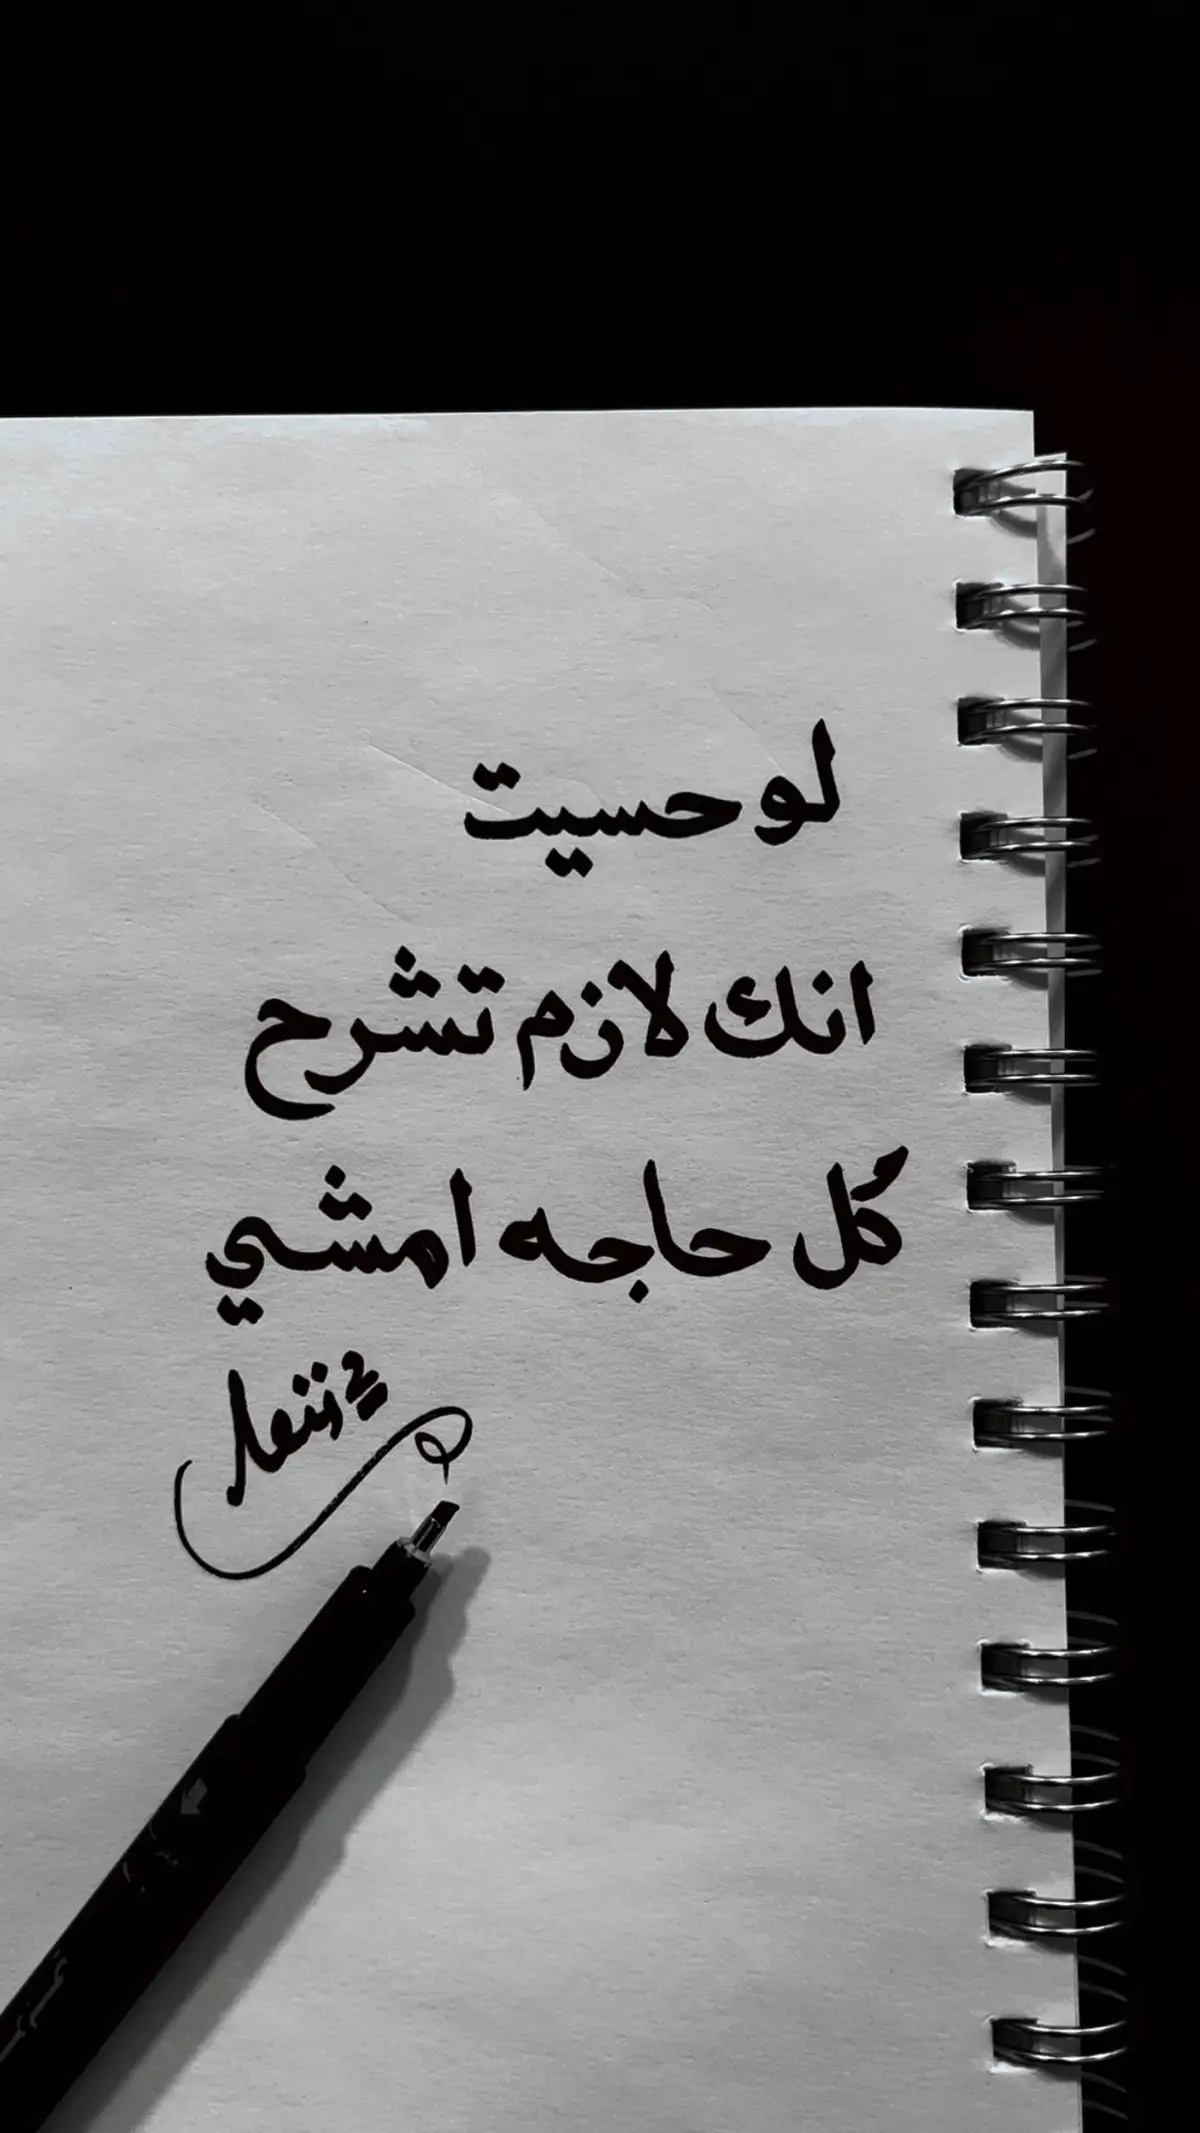 لو حسيت
انك لازم تشرح
كُل حاجه امشي